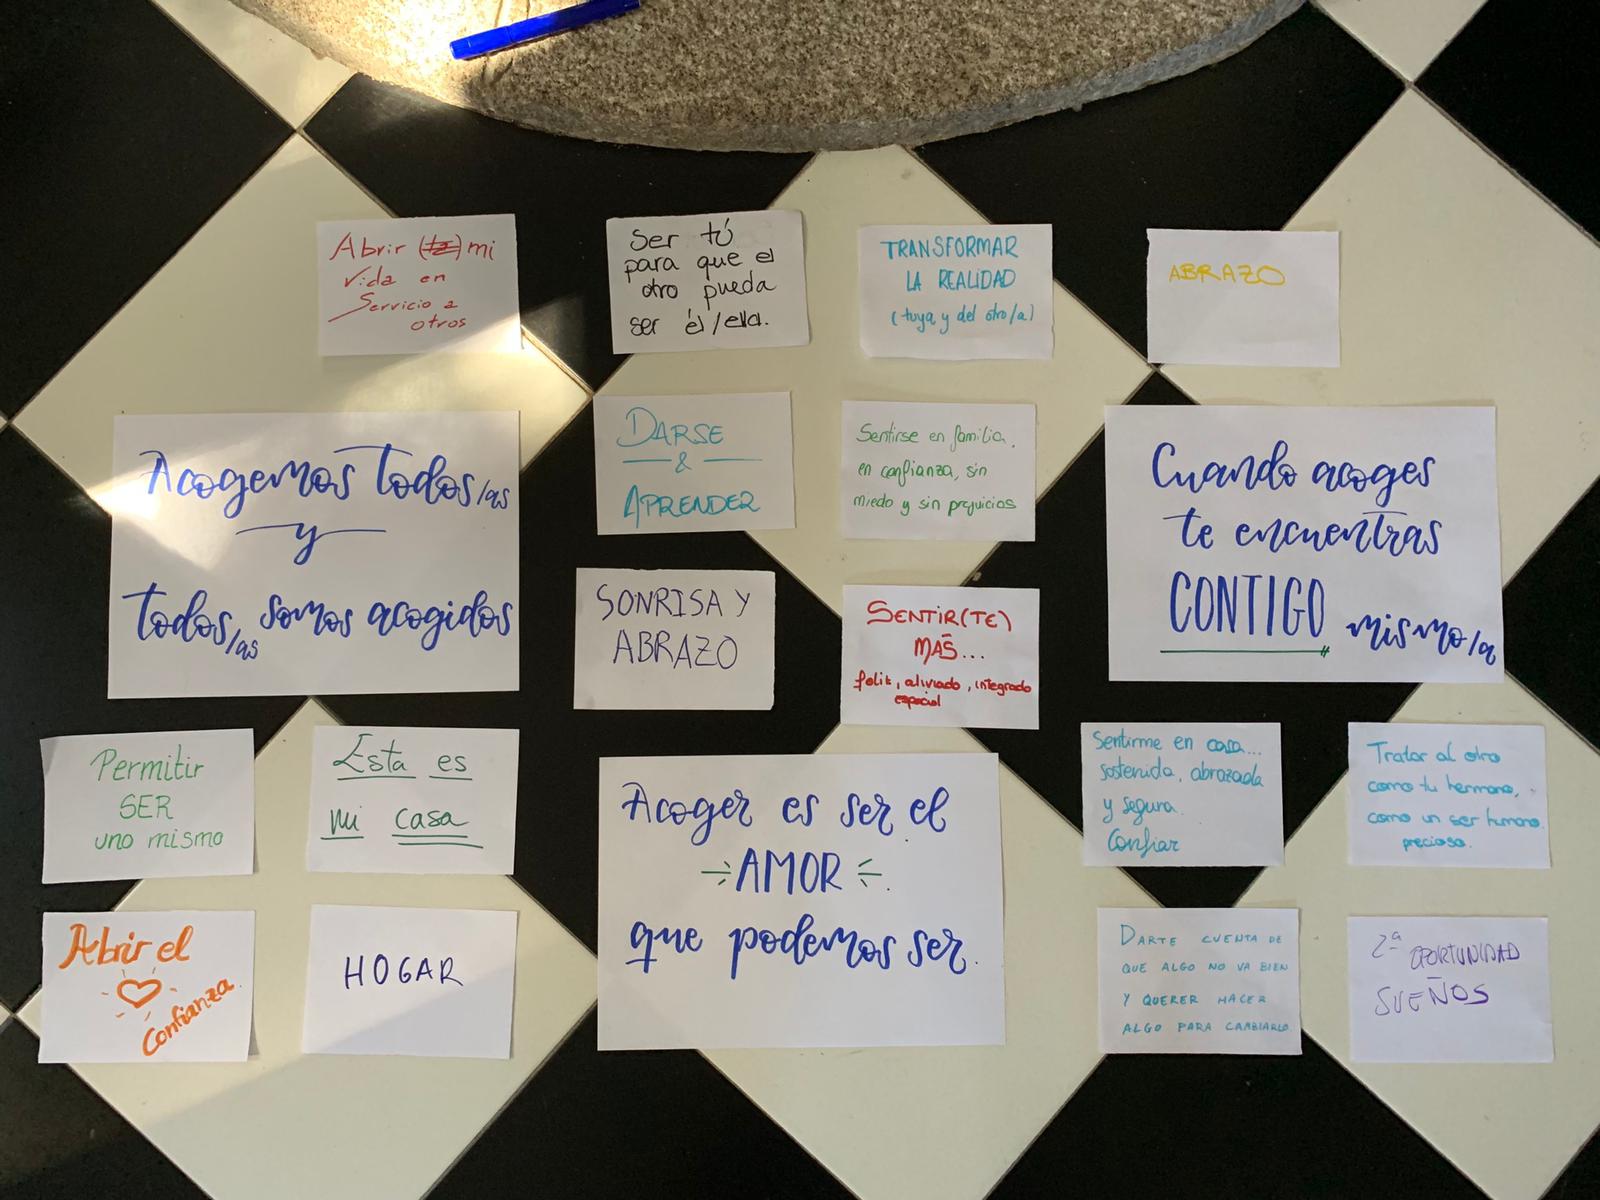 Abrir (ta) mi
vida en
Servicio a
otros
Ser tú
para que el
otro pueda
ser él/ella.
TRANSFORMAR
LA REALIDAD
(tuya y del otro/a)
ABRAZO
Acogemos todos/as
y
todos/as somos acogidos
DARSE
&
APRENDER
Sentirse en familia,
en confianza, sin
miedo y sin prejuicios
Cuando acoges
te encuentras
CONTIGO mismo/a
SONRISA Y
ABRAZO
SENTIR(TE)
MÁS...
feliz, aliviado, integrado
especial
Permitir
SER
uno mismo
Esta es
mi casa
Acoger es ser el
AMOR
que podemos ser.
Sentirme en casa...
sostenida, abrazada
y segura.
Confiar
Tratar al otro
como tu hermano,
como un ser humano
precioso.
Abrir el
Confianza.
HOGAR
DARTE CUENTA DE
QUE ALGO NO VA BIEN
Y QUERER HACER
ALGO PARA CAMBIARLO
2ª OPORTUNIDAD
SUEÑOS